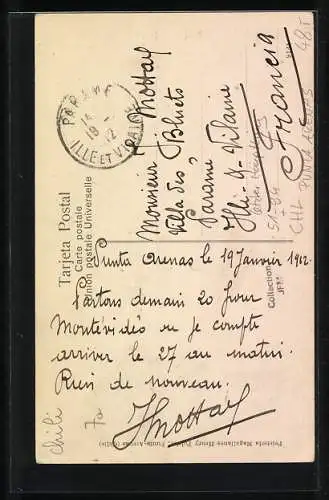 Tarjeta Postal
Carte postale
Union postale Universelle
PARAMÉ
12
ILLE ET VILAINE
Monsieur Mottay
Villa des Bluets
Paramé
Ille-&-Vilaine
Francia
48T
CHL PUNTA ARENAS
Collection
JFM
Punta Arenas le 19 Janvier 1912
Partons demain 20 pour
Montévidéo ou je compte
arriver le 27 au matin.
Rien de nouveau.
JMottay
Chili
Peletería Magallanes Henry
Punta-Arenas (Chile)